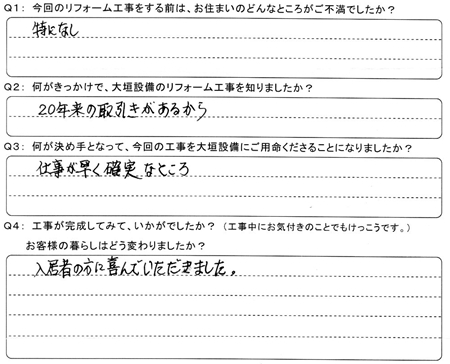 Q1: 今回のリフォーム工事をする前は、お住まいのどんなところがご不満でしたか?
特になし
Q2: 何がきっかけで、大垣設備のリフォーム工事を知りましたか?
20年来の取引きがあるから
Q3: 何が決め手となって、今回の工事を大垣設備にご用命くださることになりましたか?
仕事が早く確実なところ
Q4: 工事が完成してみて、いかがでしたか? (工事中にお気付きのことでもけっこうです。)
お客様の暮らしはどう変わりましたか?
入居者の方に喜んでいただきました。